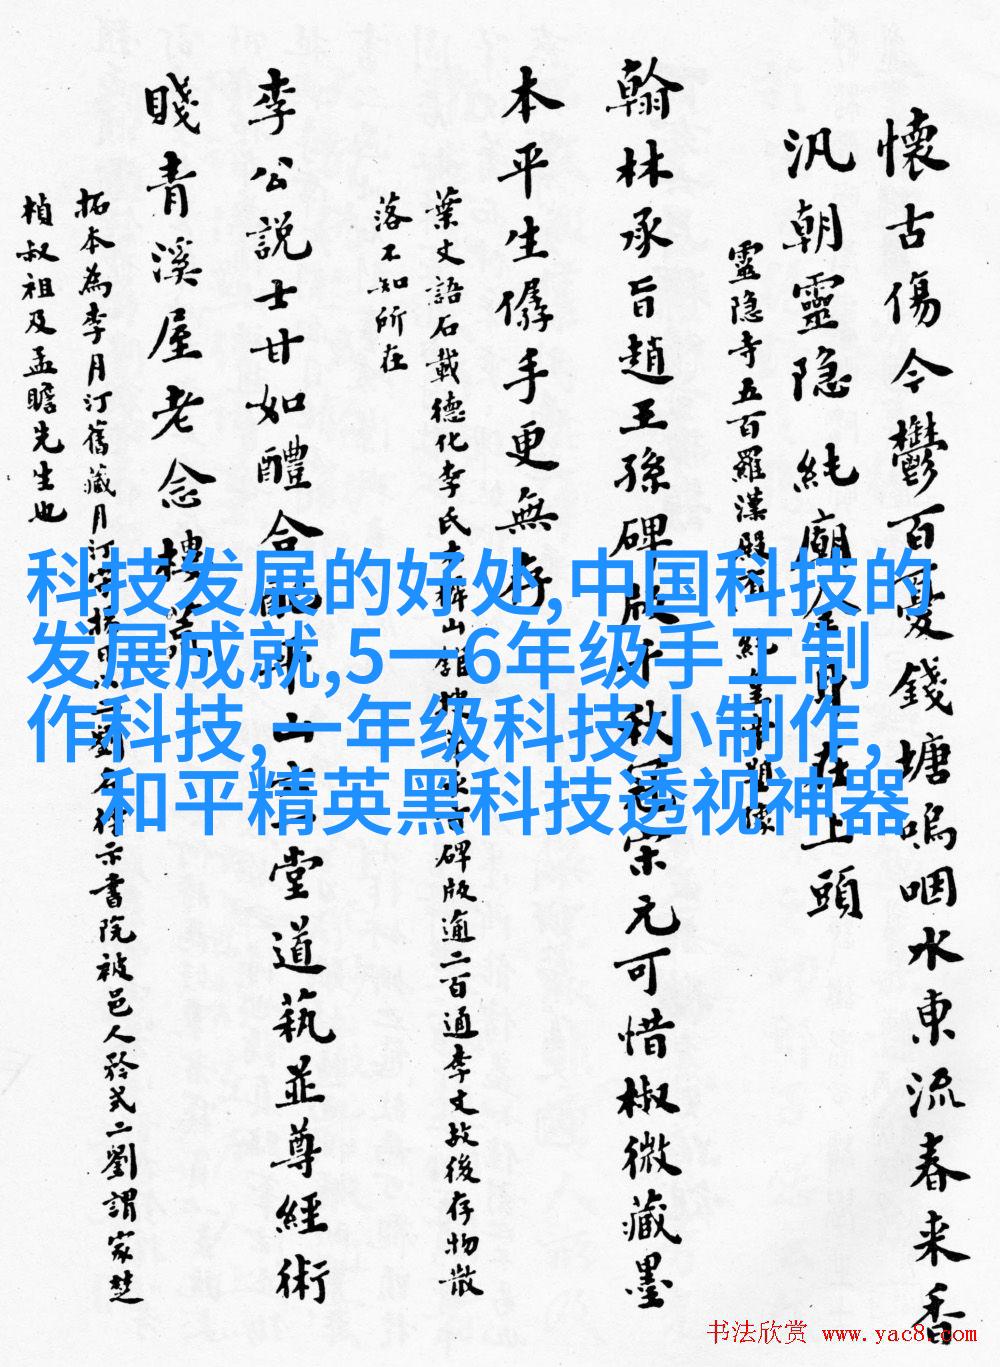 懷古傷今鬱百憂錢塘嗚咽水東流春来香
汎朝靈隐純廟金身在上頭
靈隐寺五百羅漢殿
翰林承旨趙王孫碑版
秋
宋元可惜椒微藏墨
本平生僢手更無存
葉文語石載德化李氏
山
碑版逾二百通李文故後存物散
落不知所在
李公説士甘如醴合
山
堂道藝並尊經術
賤青溪屋老念樓
拓本為李月汀舊藏月汀
劉
示書院被邑人矜式二劉謂家楚
楨叔祖及孟瞻先生也
科技发展的好处,中国科技的
发展成就,5一6年级手工制
作科技,一年级科技小制作,
和平精英黑科技透视神器
书法欣赏 www.yac8.com